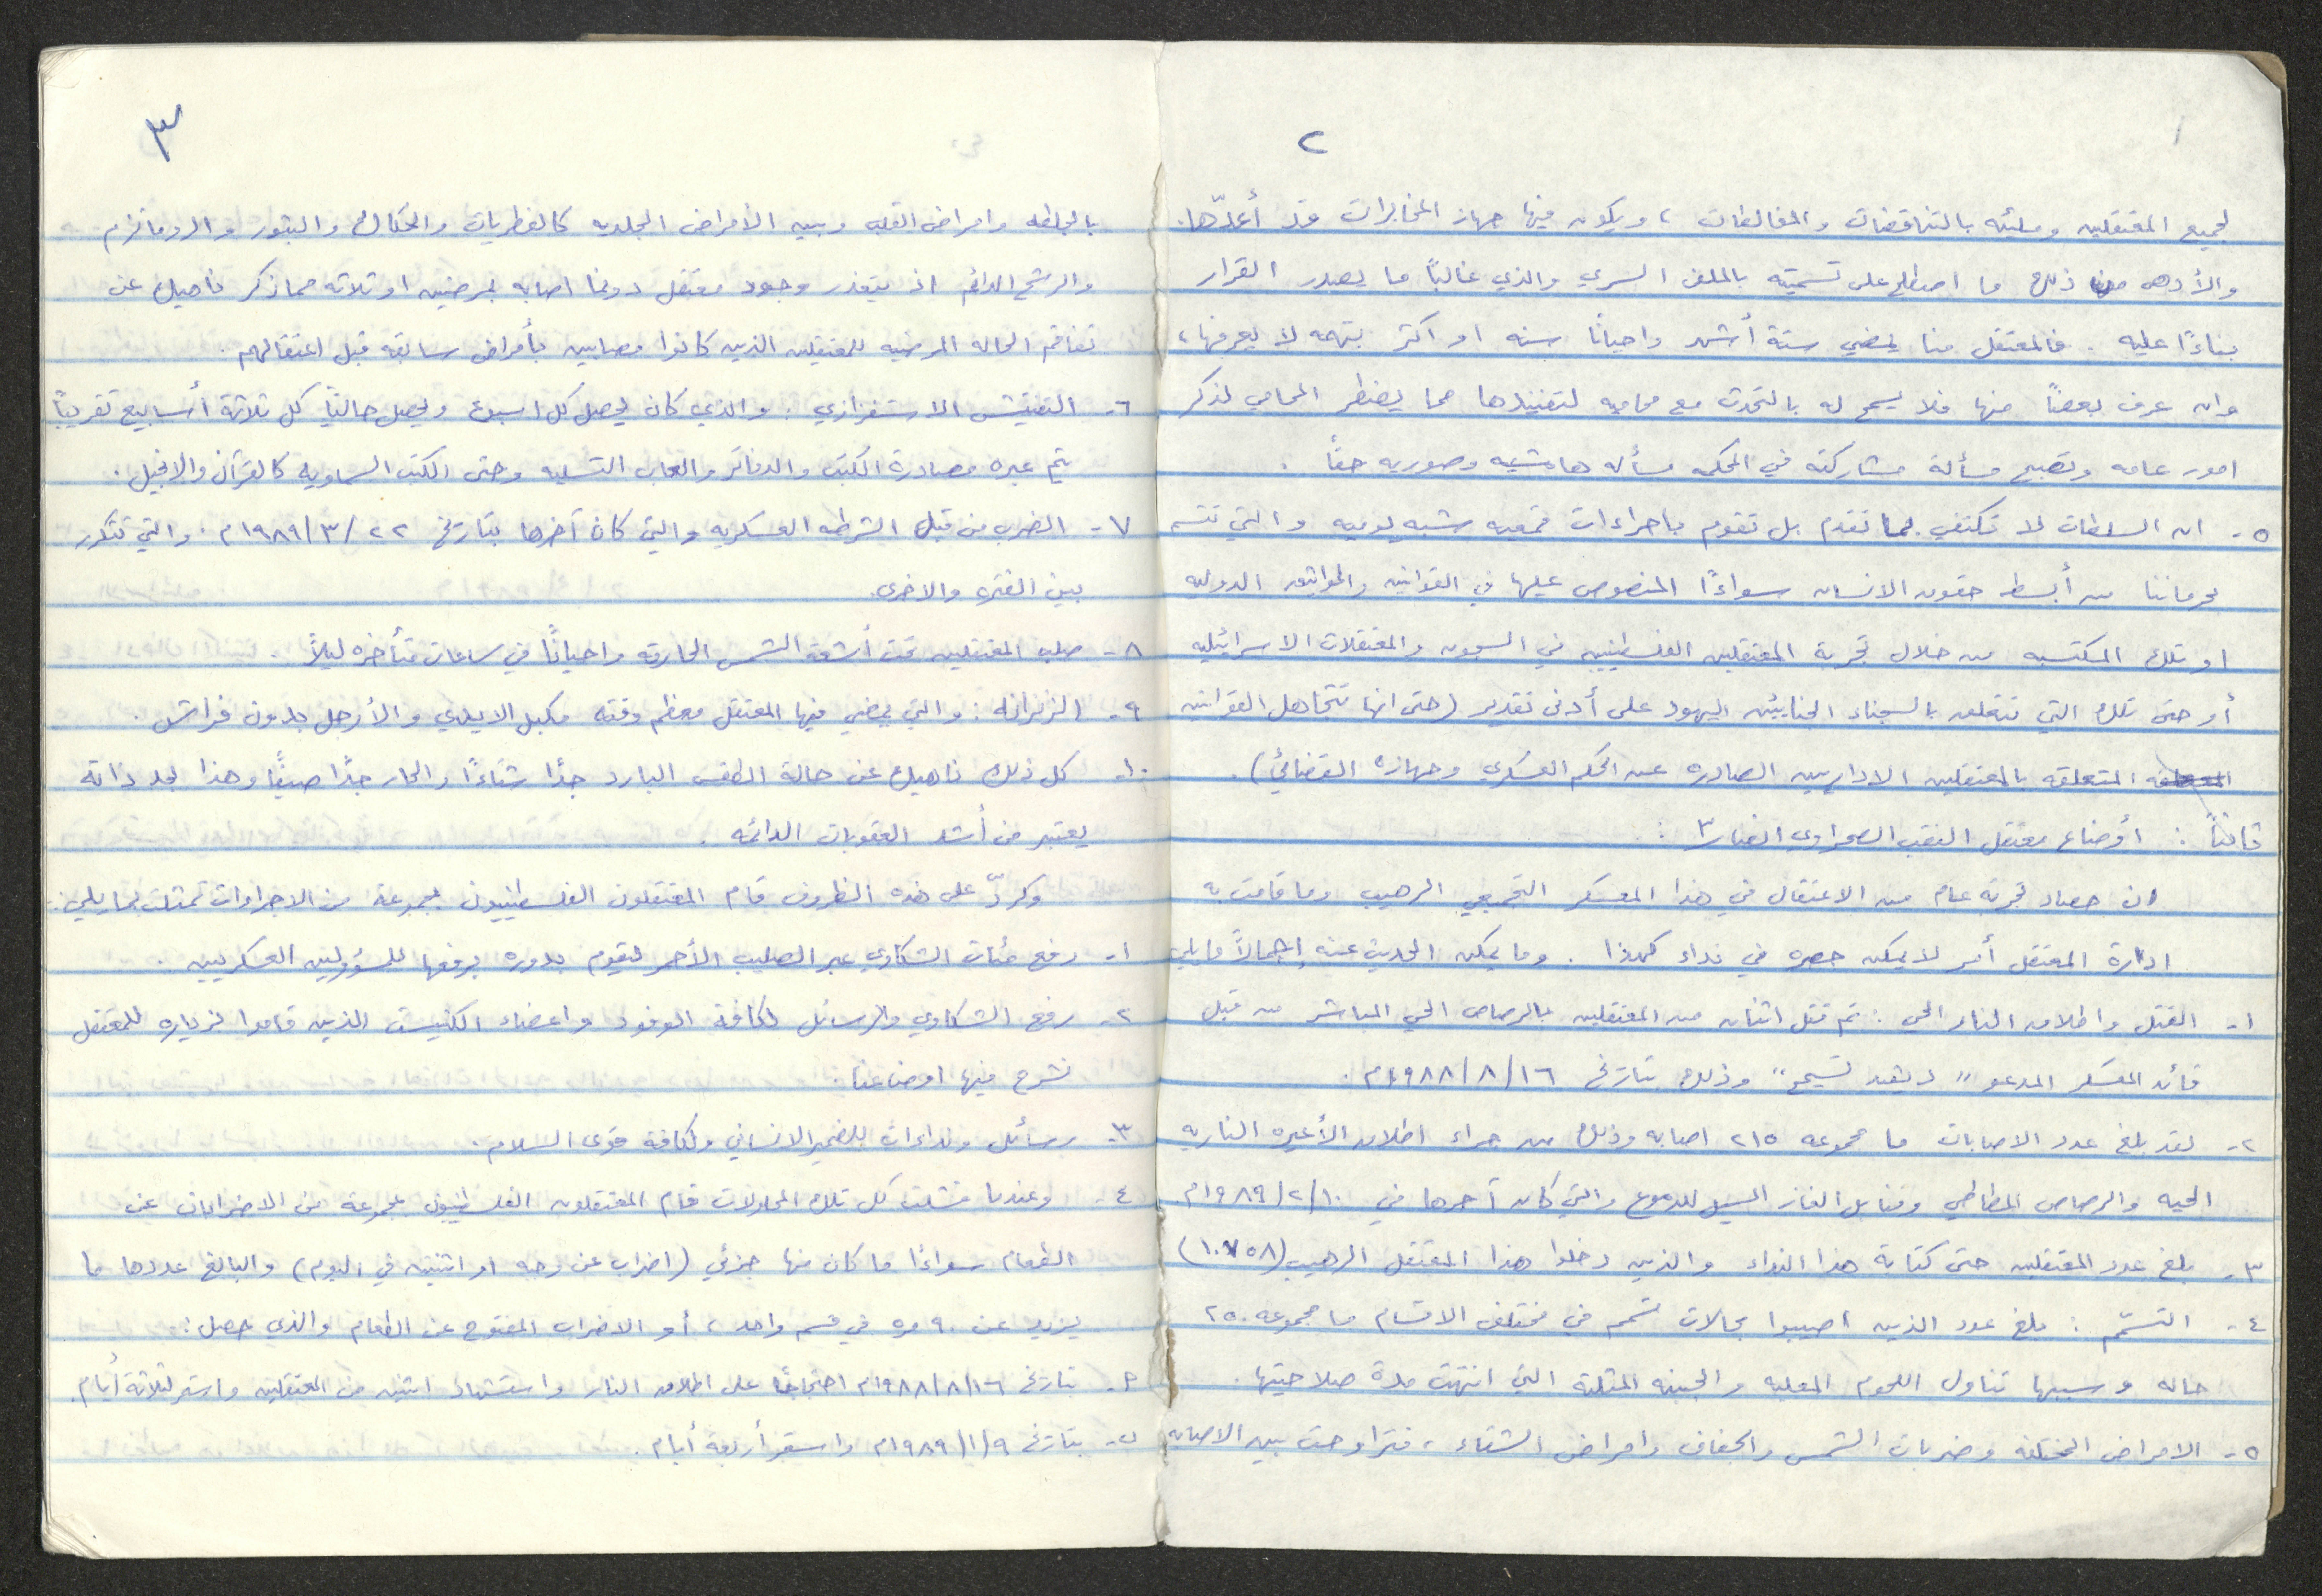 ٢
لجميع المعتقلين ومليئه بالتناقضات والمغالطات ، ويكون فيها جهاز المخابرات قد أعدّها.
والأدهى من ذلك ما اصطلح على تسميته بالملف السري والذي غالباً ما يصدر القرار
بناءًا عليه . فالمعتقل منا يمضي ستة أشهر واحيانًا سنه او اكثر بتهمه لا يعرفها ،
وان عرف بعضاً منها فلا يسمح له بالتحدث مع محاميه لتفنيدها مما يضطر المحامي لذكر
امور عامه وتصبح مسألة مشاركته في المحكمه مسألة هامشيه وصوريه حقاً .
٥- ان السلطات لا تكتفي بما تقدم بل تقوم باجراءات قمعيه شبه يوميه والتي تتسم
بحرماننا من أبسط حقوق الانسان سواءًا المنصوص عليها في القوانين والمواثيق الدوليه
او تلك المكتسبه من خلال تجربة المعتقلين الفلسطينيين في السجون والمعتقلات الاسرائيليه
أو حتى تلك التي تتعلق بالسجناء الجنائيين اليهود على أدنى تقدير (حتى انها تتجاهل القوانين
المتعلقه بالمعتقلين الاداريين الصادره عن الحكم العسكري وجهازه القضائي) .
ثانياً : أوضاع معتقل النقب الصحراوي انصار ٣ :
ان حصاد تجربة عام من الاعتقال في هذا المعسكر التجميعي الرهيب وما قامت به
ادارة المعتقل أمر لا يمكن حصره في نداء كهذا . وما يمكن الحديث عنه إجمالاً ما يلي
١- القتل واطلاق النار الحي : تم قتل اثنان من المعتقلين بالرصاص الحي المباشر من قبل
قائد المعسكر المدعو " ديفيد تسيمح " وذلك بتاريخ ١٦/٨/١٩٨٨م .
٢- لقد بلغ عدد الاصابات ما مجموعه ٢١٥ اصابه وذلك من جراء اطلاق الأعيره الناريه
الحيه والرصاص المطاطي وقنابل الغاز المسيل للدموع والتي كان آخرها في ١٠/٢/١٩٨٩م
٣- بلغ عدد المعتقلين حتى كتابة هذا النداء والذين دخلوا هذا المعتقل الرهيب (١٠٧٥٨)
٤- التسمّم : بلغ عدد الذين اصيبوا بحالات تسمم في مختلف الاقسام ما مجموعه ٢٥٠
حاله وسببها تناول اللحوم المعلبه والجبنه المثلثة التي انتهت مدة صلاحيتها .
٥- الامراض المختلفه وضربات الشمس والجفاف وامراض الشتاء ، فتراوحت بين الاصابه
٣
بالجلطه وامراض القلب وبين الأمراض الجلديه كالفطريات والحكاك والبثور والروماتزم
والرشح الدائم اذ يتعذر وجود معتقل دونما اصابه بمرضين او ثلاثه مما ذكر ناهيك عن
تفاقم الحاله المرضيه للمعتقلين الذين كانوا مصابين بأمراض سابقه قبل اعتقالهم .
٦- التفتيش الاستفزازي : والذي كان يحصل كل اسبوع ويحصل حالياً كل ثلاثة أسابيع تقريباً
يتم عبره مصادرة الكتب والدفاتر والعاب التسليه وحتى الكتب السماويه كالقرآن والانجيل .
٧- الضرب من قبل الشرطه العسكريه والتي كان آخرها بتاريخ ٢٢/٣/١٩٨٩م . والتي تتكرر
بين الفتره والاخرى.
٨- صلب المعتقلين تحت أشعة الشمس الحارقه واحيانًا في ساعات متأخره ليلاً .
٩- الزنزانه : والتي يمضي فيها المعتقل معظم وقته مكبل الايدي والأرجل بدون فراش .
١٠- كل ذلك ناهيك عن حالة الطقس البارد جدًا شتاءًا والحار جدًا صيفًا وهذا بحد ذاته
يعتبر من أشد العقوبات الدائمه .
وكردّ على هذه الظروف قام المعتقلون الفلسطينيون بمجموعة من الاجراءات تمثلت بما يلي :
١- رفع مئات الشكاوي عبر الصليب الأحمر ليقوم بدوره برفعها للمسؤولين العسكريين .
٢- رفع الشكاوي والرسائل لكافة الوفود واعضاء الكنيست الذين قاموا بزياره للمعتقل
نشرح فيها اوضاعنا .
٣- رسائل ونداءات للضمير الانساني ولكافة قوى السلام .
٤- وعندما فشلت كل تلك المحاولات قام المعتقلون الفلسطينيون بمجموعة من الاضرابات عن
الطعام سواءًا ما كان منها جزئي (اضراب عن وجبه او اثنتين في اليوم) والبالغ عددها ما
يزيد عن ٩٠ مره في قسم واحد ، أو الاضراب المفتوح عن الطعام والذي حصل :
بتاريخ ١٦/٨/١٩٨٨م احتجاجًا على اطلاق النار واستشهاد اثنين من المعتقلين واستمر لثلاثة أيام.
ب- بتاريخ ٩/١/١٩٨٩م واستمر أربعة أيام .